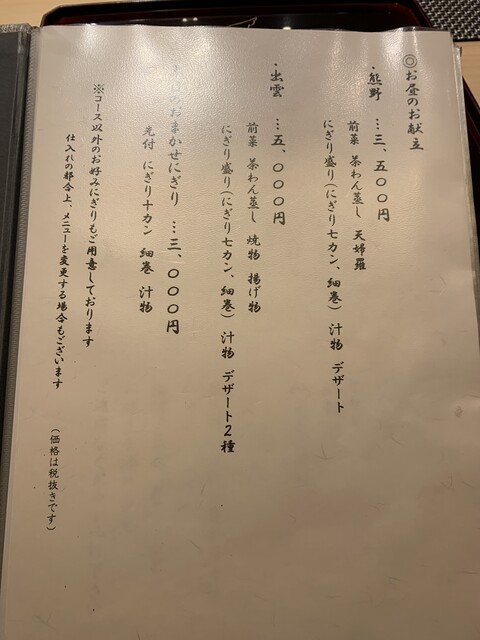 ◎お昼のお献立
・熊野 …三、五〇〇円
前菜 茶わん蒸し 天婦羅
にぎり盛り(にぎり七カン、細巻) 汁物 デザート
・出雲 …五、〇〇〇円
前菜 茶わん蒸し 焼物 揚げ物
にぎり盛り(にぎり七カン、細巻) 汁物 デザート2種
のおまかせにぎり …三、〇〇〇円
先付 にぎり十カン 細巻 汁物
※コース以外のお好みにぎりもご用意しております
仕入れの都合上、メニューを変更する場合もございます
(価格は税抜きです)